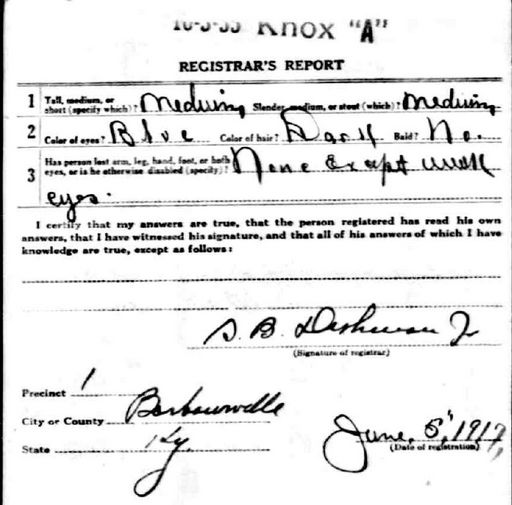 Knox "A"
REGISTRAR'S REPORT
1 Tall, medium, or short (specify which)? Medium Slender, medium, or stout (which)? Medium
2 Color of eyes? Blue Color of hair? Dark Bald? No.
3 Has person lost arm, leg, hand, foot, or both eyes, or is he otherwise disabled (specify)? None Except weak
eyes.
I certify that my answers are true, that the person registered has read his own
answers, that I have witnessed his signature, and that all of his answers of which I have
knowledge are true, except as follows:
S. B. Dishman Jr
(Signature of registrar)
Precinct 1
City or County Barbourville
State Ky.
June, 5, 1917,
(Date of registration)